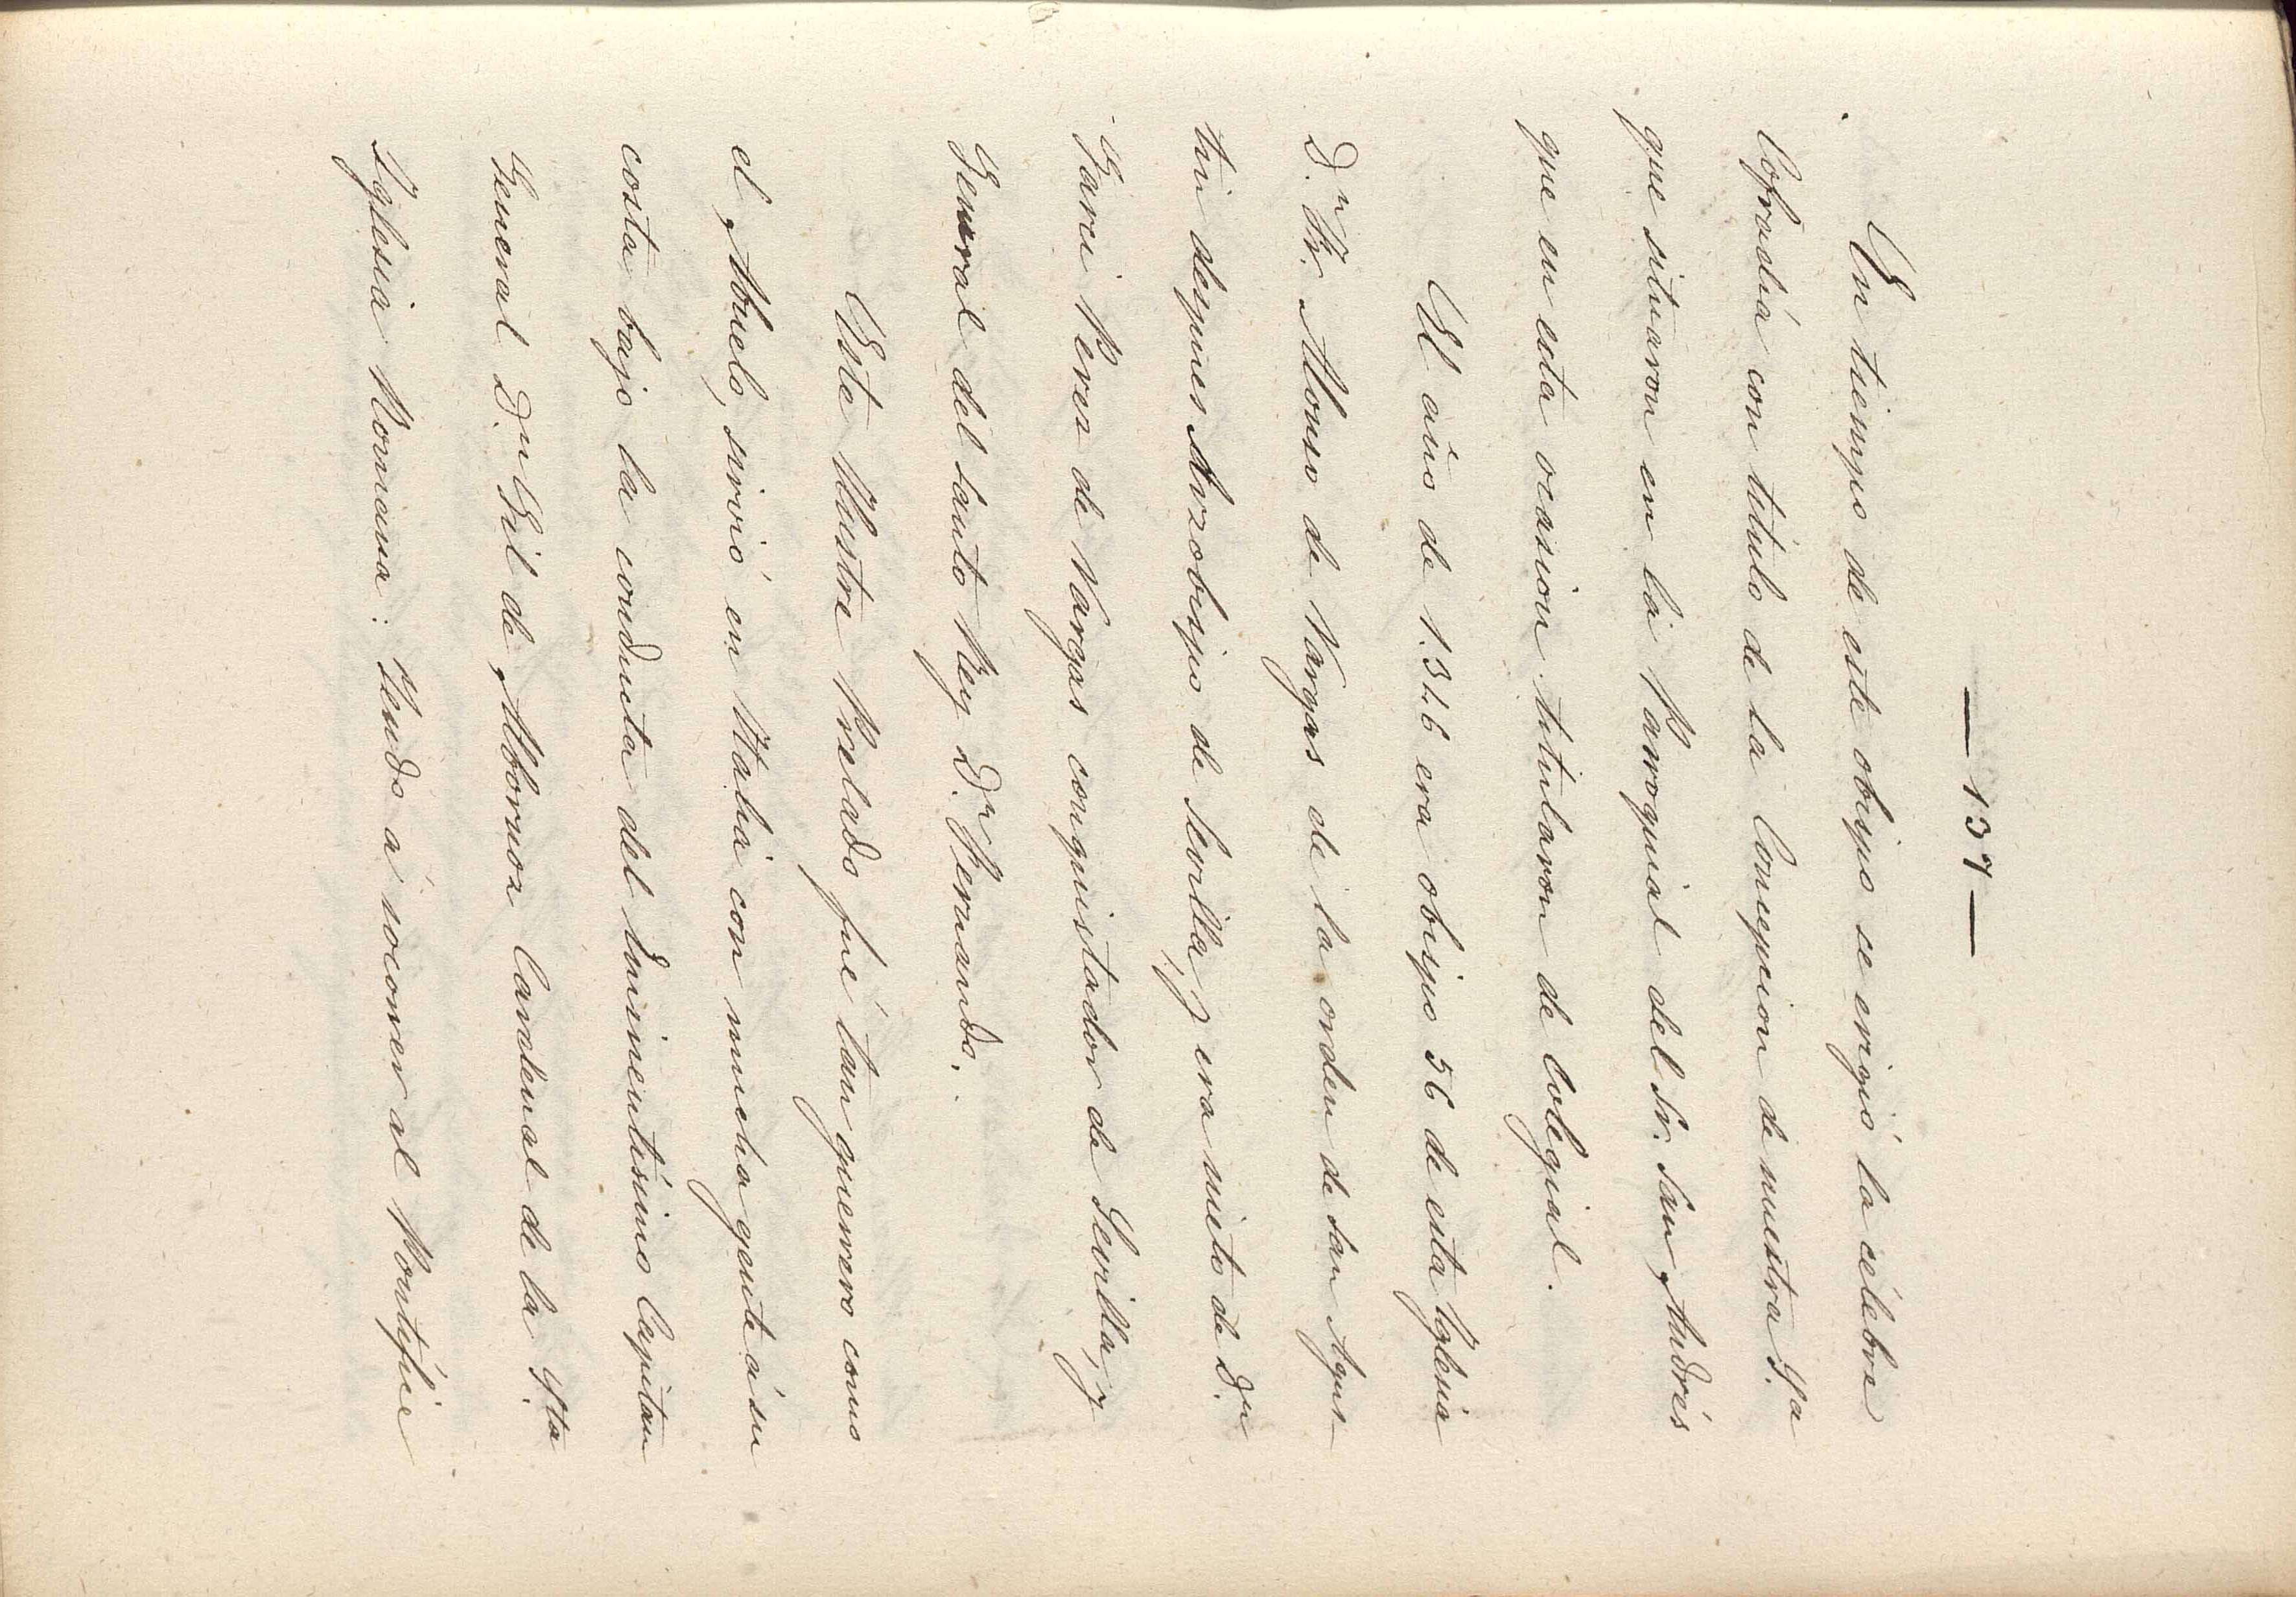 — 137 —
En tiempo de este obispo se erigió la célebre
Cofradía con título de la Concepcion de nuestra Sª
que situaron en la Parroquial del Sr. San Andrés
que en esta ocasion titularon de Colegial.
El año de 1.346 era obispo 56 de esta Yglesia
D.n Fr. Alonso de Vargas de la orden de San Agus-
tin despues Arzobispo de Sevilla, y era nieto de D.n
Garci Perez de Vargas conquistador de Sevilla, y
General del Santo Rey D.n Fernando.
Este Ilustre Prelado fué tan guerrero como
el Abuelo, sirvió en Ytalia con mucha gente á su
costa bajo la conducta del Eminentísimo Capitan
General D.n Gil de Albornoz Cardenal de la Sta
Yglesia Romana: Yendo á socorrer al Pontífice